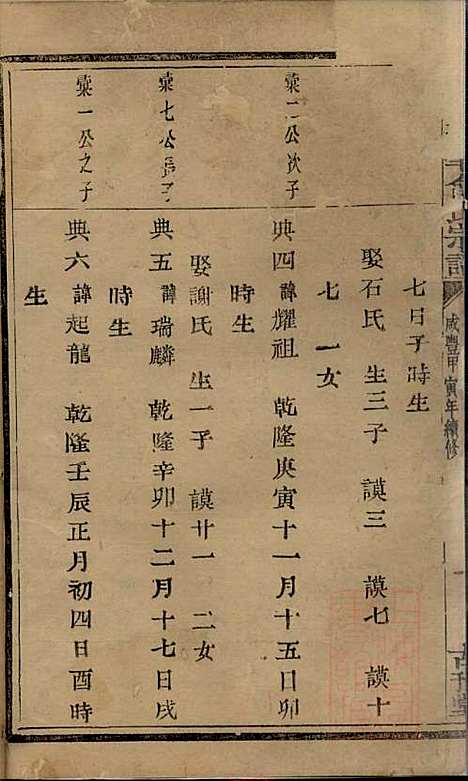 宗譜
咸豐甲寅年續修
七日子時生
娶石氏 生三子 謨三 謨七 謨十
七 一女
彙二公次子
典四 諱耀祖 乾隆庚寅十一月十五日卯
時生
娶謝氏 生一子 謨廿一 二女
彙七公長子
典五 諱瑞麟 乾隆辛卯十二月十七日戌
時生
彙一公之子
典六 諱起龍 乾隆壬辰正月初四日酉時
生